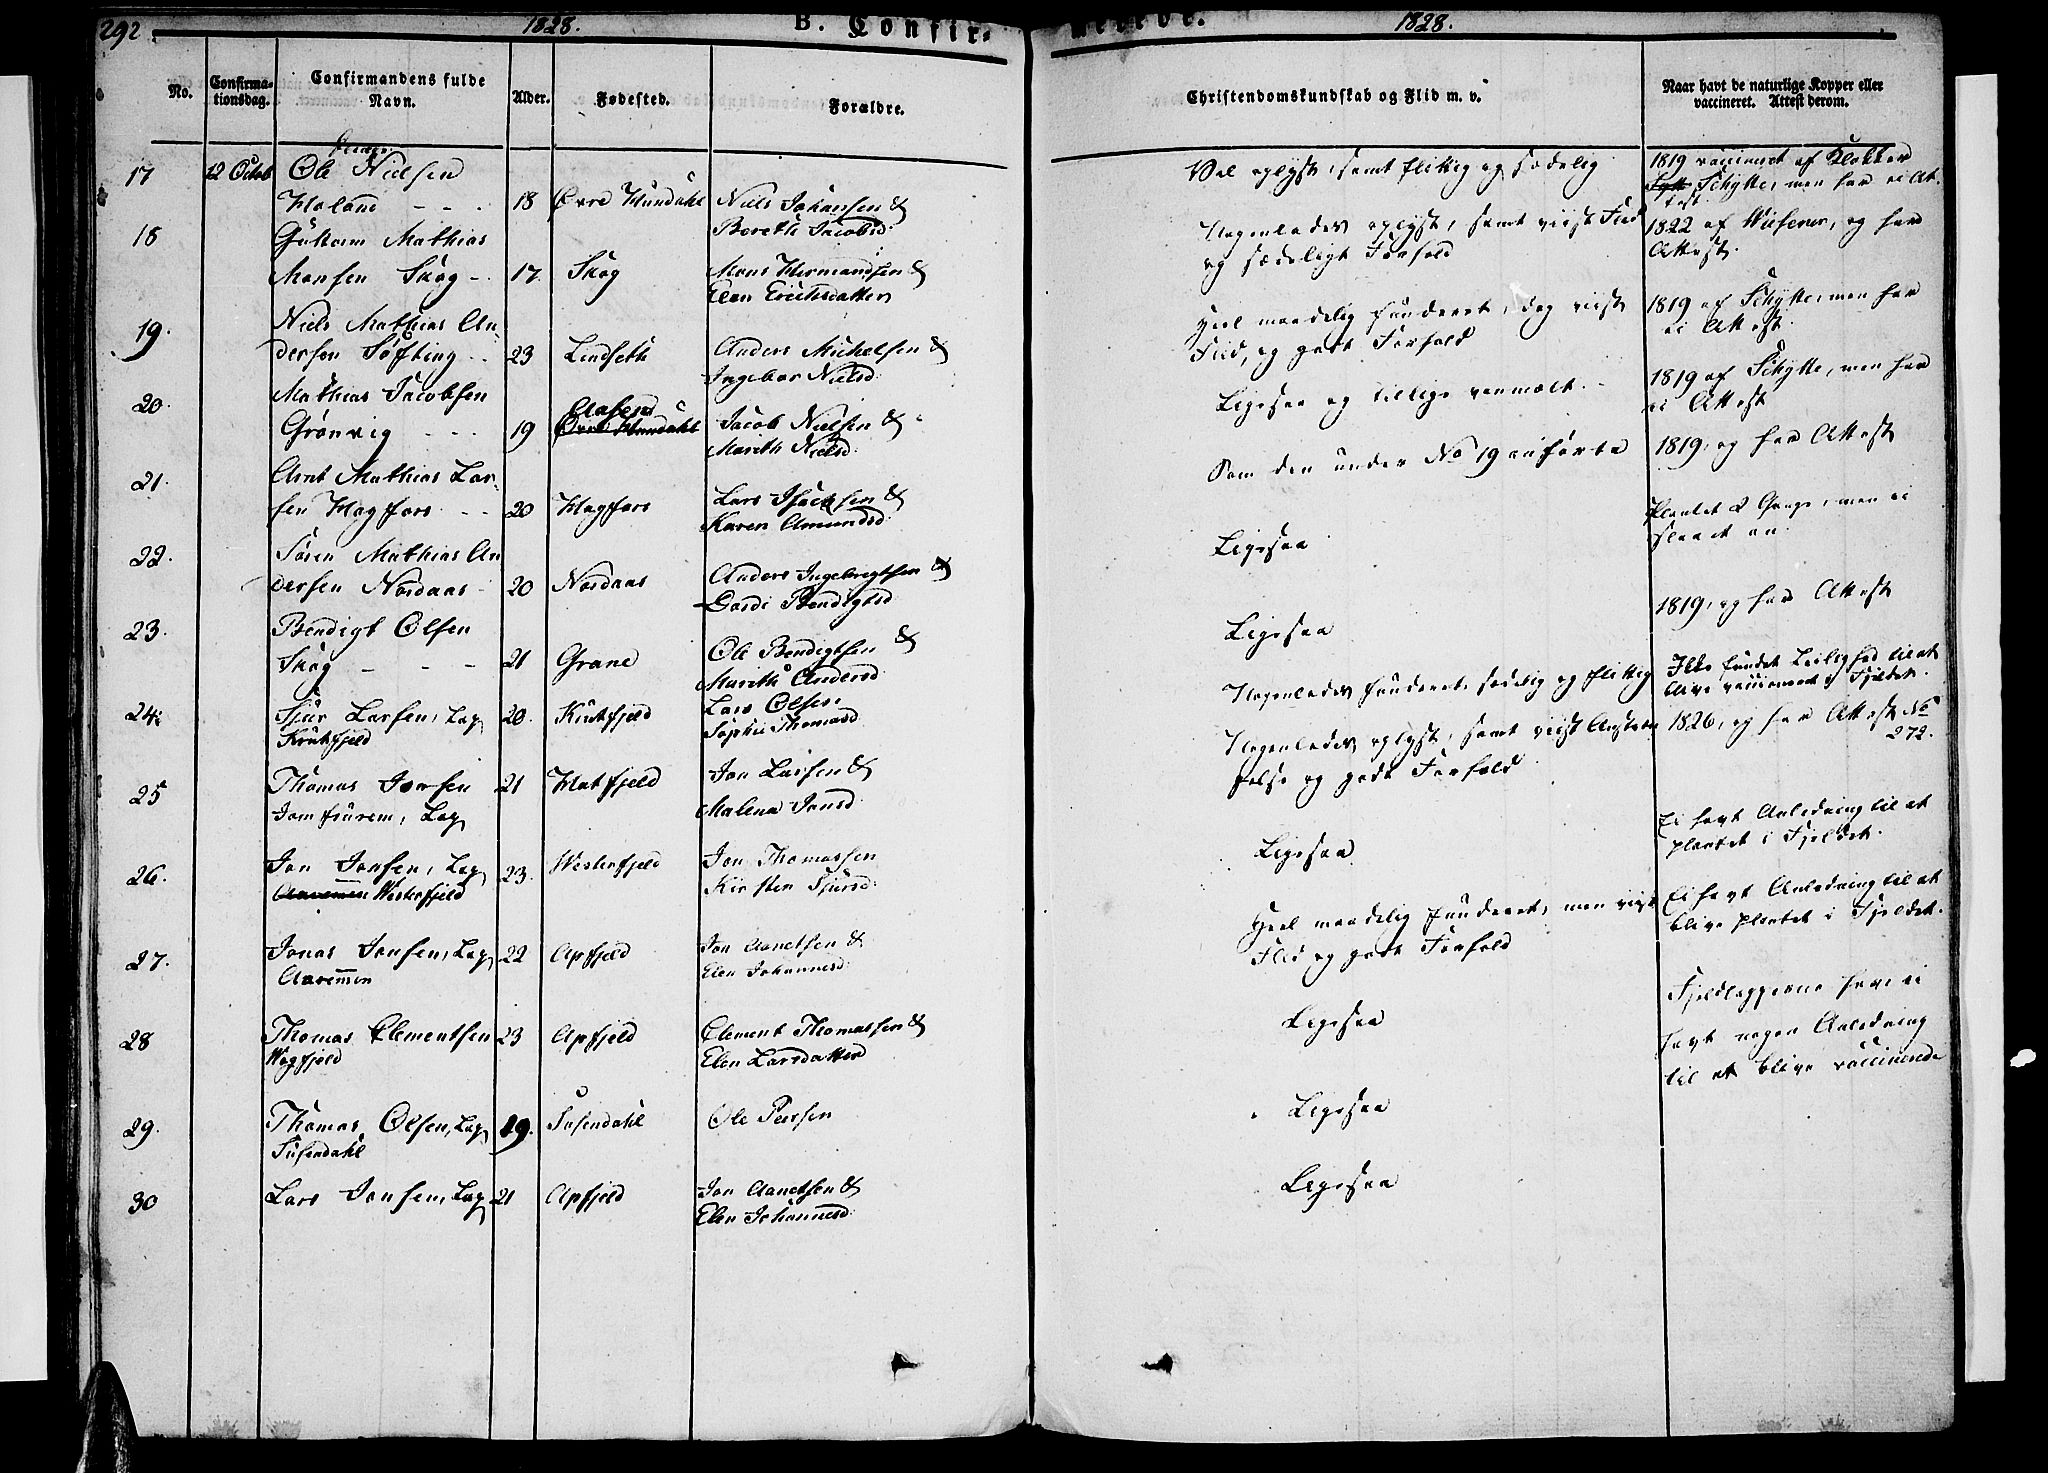 292
1828.
B. Confir-
merede.
1828.
No.
Confirma-
tionsdag.
Confirmandens fulde
Navn.
Alder.
Fødested.
Forældre.
Christendomskundskab og Flid m. v.
Naar havt de naturlige Kopper eller
vaccineret. Attest derom.
17 12 Octob Ole Nielsen
Haland - - - 18 Øvre Hundahl Niels Johansen &
Bereth Jacobsd.
Vel oplyst, samt flittig og sædelig
1819 vaccineret af Klokker
Schytte, men har ei At-
test
18 Guttorm Mathias
Monsen Skog - 17 Skog Mons Hermandsen &
Elen Erichsdatter
Nogenledes oplyst, samt viist Flid
og sædeligt Forhold
1822 af Wiisener, og har
Attest.
19. Niels Mathias An-
dersen Søfting - - 23 Lindseth Anders Michelsen &
Ingebor Nielsd.
Heel maadelig funderet, dog viist
Flid, og godt Forhold
1819 af Schytte, men har
ei Attest.
20. Mathias Jacobsen
Grønvig - - - 19 Aasen
Øvre Hundahl Jacob Nielsen &
Marith Nielsd.
Ligesaa og tillige
1819 af Schytte, men har
ei Attest
21. Arnt Mathias Lar-
sen Hagfors - - 20 Hagfors Lars Isacksen &
Karen Amundsd.
Som den under No 19 anførte
1819, og har Attest
22. Søren Mathias An
dersen Nordaas - 20 Nordaas Anders Ingebregtsen &
Dordi Bendigtsd
Ligesaa
Plantet 2 Gange, men ei
slaaet an.
23. Bendigt Olsen
Skog - - - 21 Grane Ole Bendigtsen &
Marith Andersd
Ligesaa
1819, og har Attest
24. Sjur Larsen, Lap 20. Krutfjeld Lars Olsen
Krutfjeld Sophie Thomasd
Nogenledes funderet, sædelig og flittig
Ikke fundet Leilighed til at
blive vaccineret i Fjeldet.
25 Thomas Jonsen 21 Hatfjeld Jon Larsen &
Jomfrurem, Lap Malena Jonsd
Nogenledes oplyst, samt viist Anstræn
gelse og godt Forhold
1826, og har Attest No
272.
26. Jon Jonsen, Lap 23. Westerfjeld Jon Thomassen
Westerfjeld Kirsten Sjursd.
Ligesaa
Ei havt Anledning til at
plantet i Fjeldet.
27. Jonas Jonsen, Lap 22 Apfjeld Jon Aanetsen &
Aaremmen Elen Johannesd.
Heel maadelig funderet, men viist
Flid og godt Forhold
Ei havt Anledning til at
blive plantet i Fjeldet.
28 Thomas Clementsen 23 Apfjeld Clement Thomassen &
Wegfjeld Elen Larsdatter
Ligesaa
Fjeldlapperne have ei
havt nogen Anledning
til at blive vaccinerede
29. Thomas Olsen, Lap 19. Susendahl Ole Persen
Susendahl
Ligesaa
30 Lars Jonsen, Lap 21 Apfjeld Jon Aanetsen &
Elen Johannesd.
Ligesaa